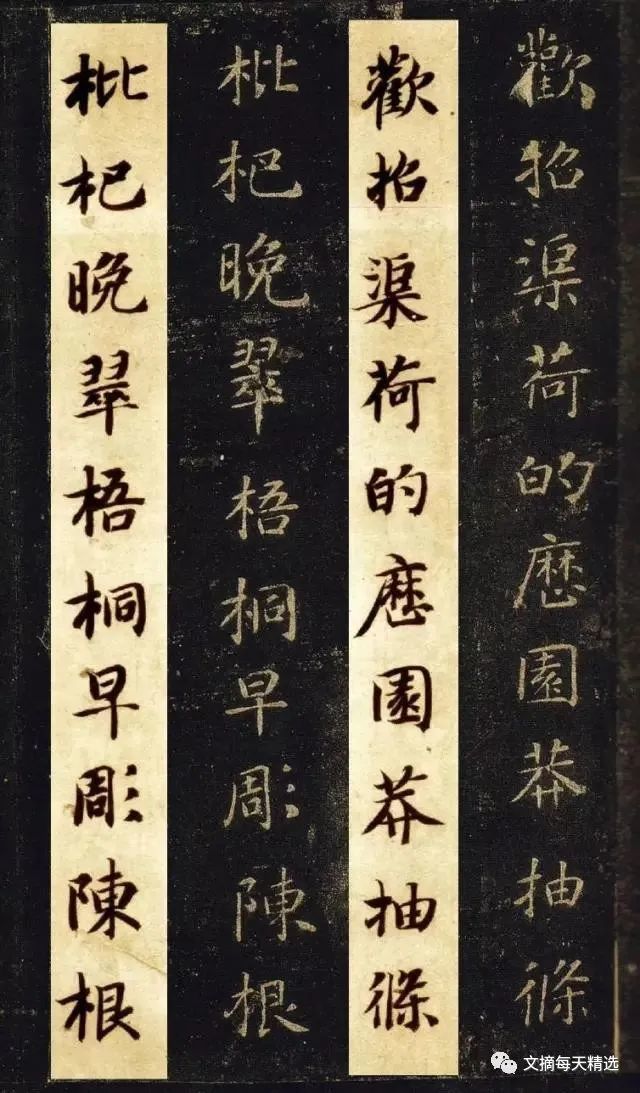 歡招渠荷的歷園莽抽條
歡招渠荷的歷園莽抽條
枇杷晚翠梧桐早彫陳根
枇杷晚翠梧桐早彫陳根
文摘每天精选